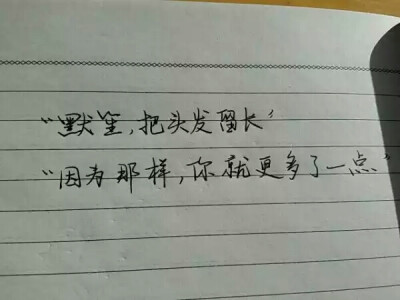 “默笙,把头发留长”
“因为那样,你就更多了一点”